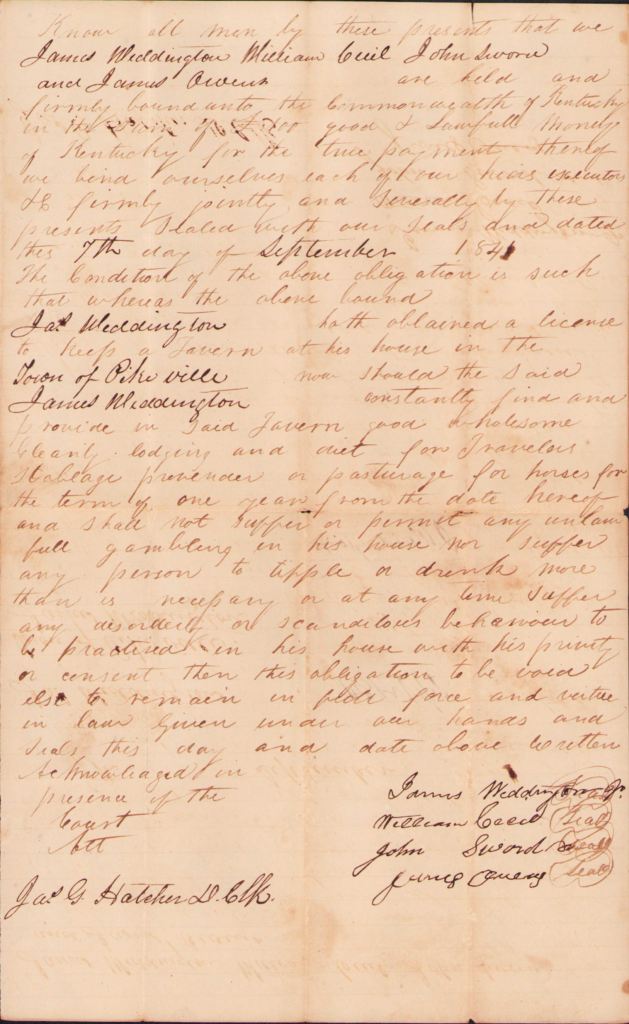 Know all men by these presents that we
James Weddington William Cecil John Sword
and James Owens are held and
firmly bound unto the Commonwealth of Kentucky
in the of good & Lawfull Money
of Kentucky for the true payment thereof
we bind ourselves each of our heirs executors
&C firmly jointly and Severally by these
presents Sealed with our Seals and dated
this 7th day of September 1841
The Condition of the above obligation is such
that whereas the above bound
Jas Weddington hath obtained a license
to keep a Tavern at his house in the
Town of Pike ville now should the said
James Weddington constantly find and
provide in Said Tavern good wholesome
Cleanly lodging and diet for Travelers
Stablage provender or pasturage for horses for
the term of one year from the date hereof
and shall not suffer or permit any unlaw
full gambling in his house nor suffer
any person to tipple or drink more
than is necessary or at any time Suffer
any disorderly or scandilous behaviour to
be practised in his house with his privity
or consent then this obligation to be void
else to remain in full force and virtue
in law Given under our hands and
Seals this day and date above written
Acknowledged in
presence of the
Court
Att
James Weddington Jr.
William Cecil Seal
John Sword Seal
James Owens Seal
Jas G Hatcher D. Clk.